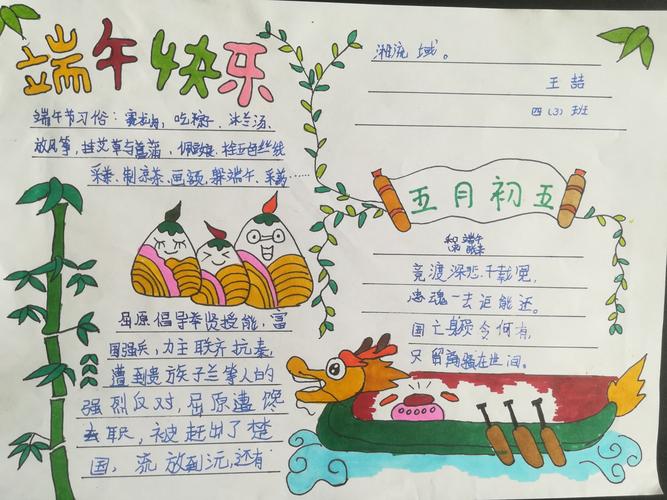 端午快乐
端午节习俗：赛龙舟，吃粽子、沐兰汤、
放风筝，挂艾草与菖蒲、佩香囊、拴五色丝线
采茶、制凉茶、画额、躲端午、采药……
屈原倡导举贤授能，富
国强兵，力主联齐抗秦，
遭到贵族子兰等人的
强烈反对，屈原遭馋
去职，被赶出了楚
国，流放到沅，还有
湘流域。
王喆
四（3）班
五月初五
和端午
张耒
竞渡深悲千载冤，
忠魂一去讵能还。
国亡身殒今何有，
只留离骚在世间。